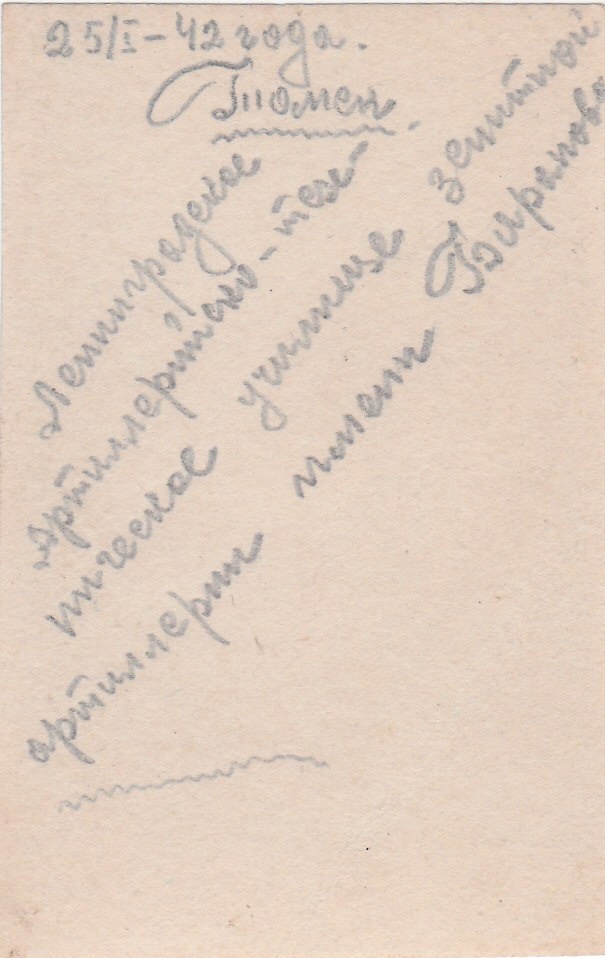 25/I – 42 года.
г. Томск.
Ленинградское
артиллерийско-тех-
ническое училище зенитной
артиллерии имени Баранова